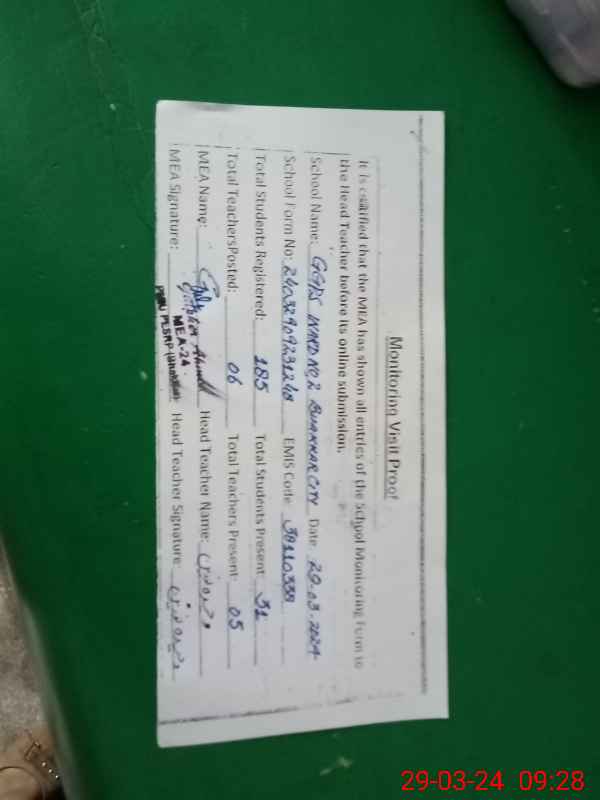 Monitoring Visit Proof
It is certified that the MEA has shown all entries of the School Monitoring Form to
the Head Teacher before its online submission.
School Name: GGPS WARD NO, 2 BHAKKAR CITY Date: 29-03-2024
School Form No: EMIS Code
Total Students Registered: 185 Total Students Present: 31
Total Teachers Posted: 06 Total Teachers Present: 05
MEA Name: Head Teacher Name:
MEA Signature: MEA-24 Head Teacher Signature:
29-03-24 09:28